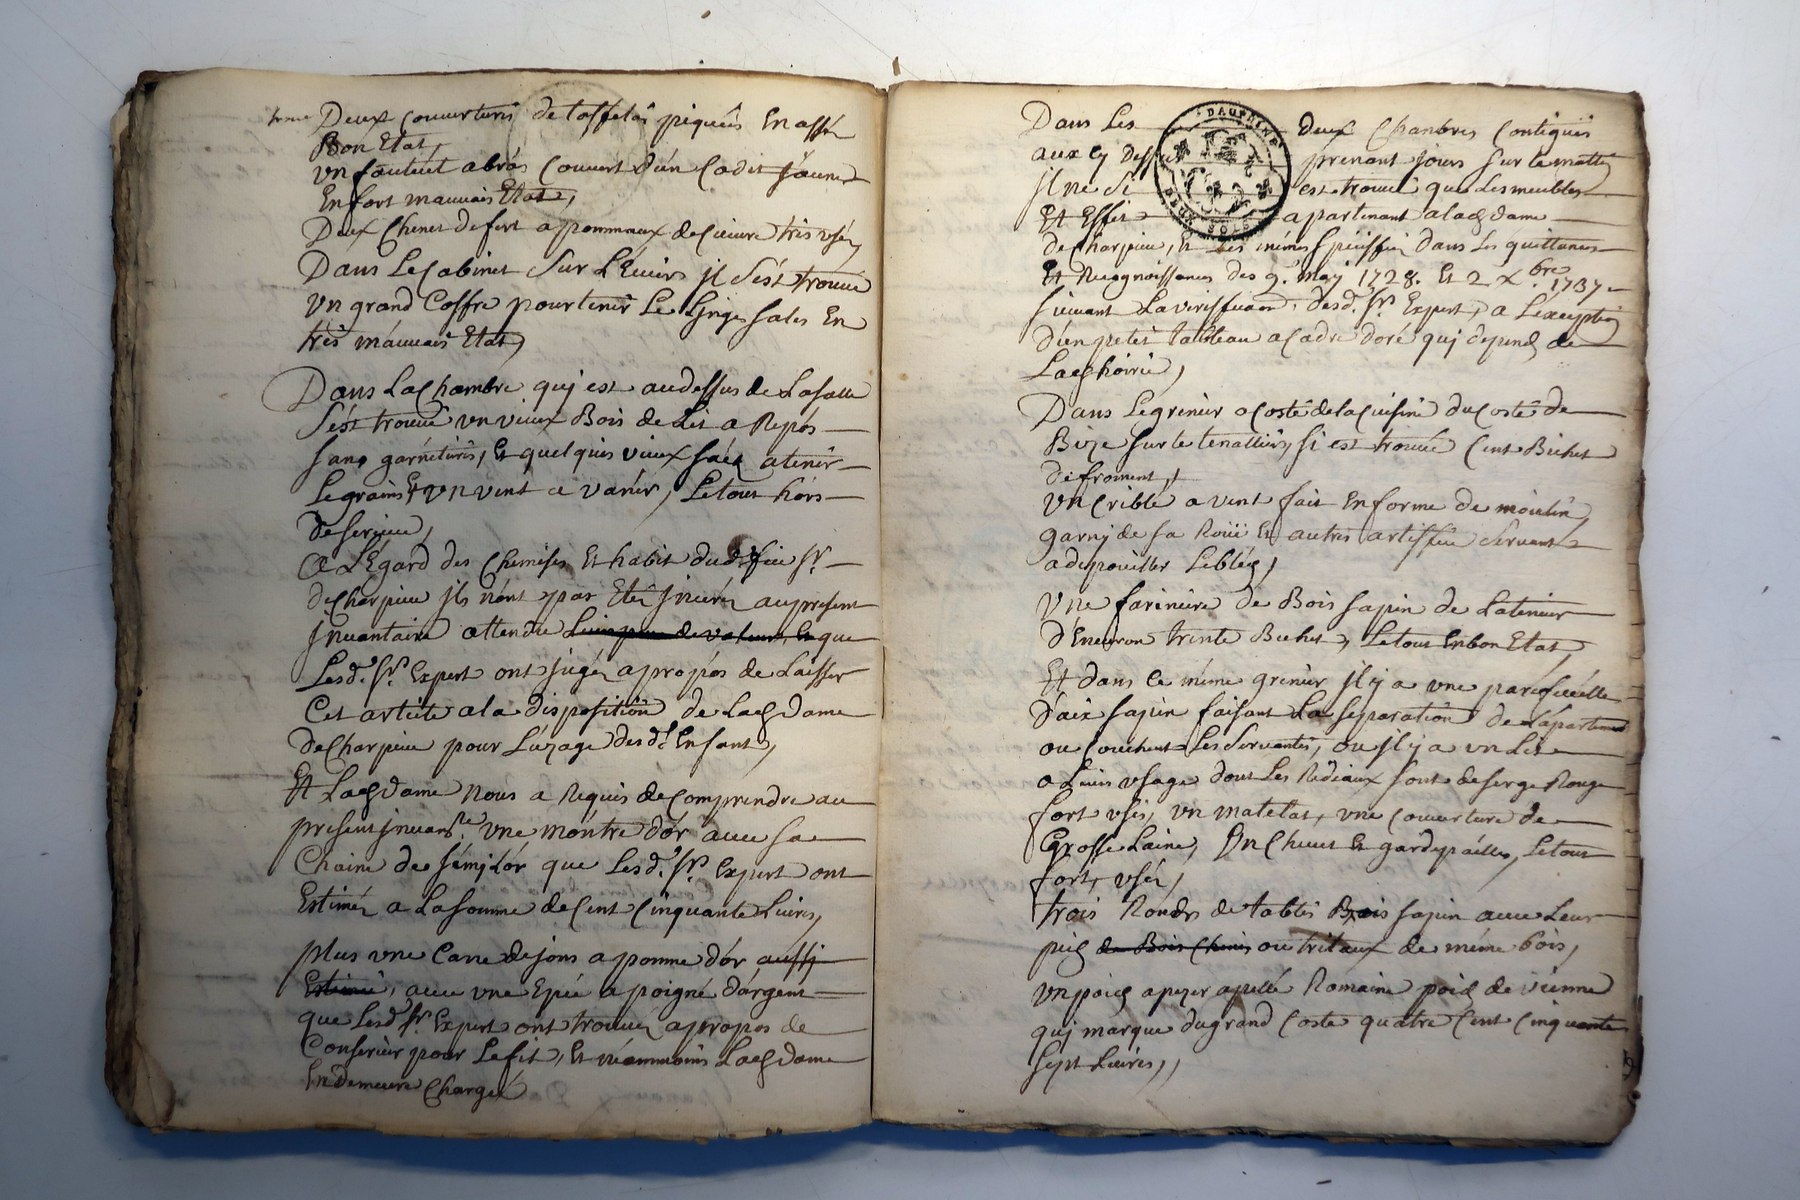 Deux couvertures de taffetas piqueés En assés
Bon Etat,
un fauteuil abrás Couvert d'un Cadit Jaune
En fort mauvais Etat,
Deux Chenet de fert a pommaux de Cuivre tres usés
Dans Le Cabinet Sur L'Evier jl s'est trouvé
un grand Coffre pour tenir Le Ljnge Sales En
trés máuvais Etat,
Dans La Chambre quj est audessus de La salle
S'est trouvé un vieux Bois de Lit a Repos
sans gárnitures, Et quelques vieux sacq a tenir
Le grains Et un vent a vaner, Le tout hórs
de servjce,
a L'Egard des Chemises Et habit dud. feu Sr.
de Charpieu jls n'ont pas Eté jnserés au present
jnvantaire attendu Leur peu de valeur, Et que
Lesd. Srs. Expert ont jugés a propós de Laisser
Cet article a la disposition de Lad dame
de Charpieu pour L'uzage desd. Enfant,
Et Lad Dame Nous a Requis de Comprendre au
present jnvanre. une montre d'or avec sa
Chaine de sémjlór que Lesd. Srs. Expert ont
Estimés a La Somme de Cent Cinquante Livres,
plus une Cane de jons a pomme d'ór aussj
Estimée, avec une Epée a poigné d'argent
que Lesd Srs. Expert ont trouvés a propos de
Conserver pour Le fils, Et néanmoins Lad Dame
En demeure Chargé
DAUPHINE
DEUX SOLS
Dans Les deux Chanbres Contigues
aux cy Dessus prenant jours sur le
jl ne s'i est trouvé que Les meubles
Et Effet apartenant a lad dame
de Charpieu, Et Les mémes speciffiés dans Les quittances
Et Recognoissances des 9. Maj 1728. Et 2 Xbre. 1737
suivant La veriffication desd. Srs. Expert, a L'exception
d'un petit tableau a Cadre doré quj depend de
Lad hoirie,
Dans Le grenier a costé de la Cuisine du Costé de
Bize sur le, s'i est trouvé Cent Bichet
de froment,
un Crible a vent fait En forme de moulin,
garnj de sa Roüe Et autres artiffice Servant
a depouiller Le bléd,
une fariniere de Bois sapin de La teneur
d'Environ trente Bichet, Le tout En bon Etat,
Et dans Ce méme grenier jl y a une
d'aix sapin faisant La separation de L'apartement
ou Couchent Les Servantes, ou jl y a un Lit
a Leurs usage dont Les Rediaux sont de serge Rouge
fort usés, un matelat, une Couverture de
Grosse Laine, Un Chevet Et gardepáille, Le tout
fort, usés,
trois Rondes de tables Bois sapin avec Leur
pied de Bois Chenes ou tritaux de méme bois,
un poid a pezer apellé Romaine poid de vienne
quj marque du grand Costé quatre Cent Cinquante
sept Livres,